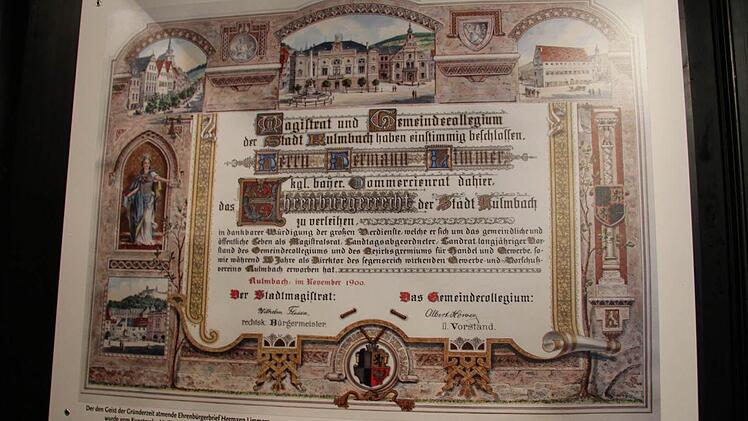 Magistrat und Gemeindecollegium
der Stadt Kulmbach haben einstimmig beschlossen,
Herrn Hermann Limmer,
kgl. bayer. Commercienrat dahier,
das Ehrenbürgerrecht der Stadt Kulmbach
zu verleihen
in dankbarer Würdigung der großen Verdienste, welche er sich um das gemeindliche und
öffentliche Leben als Magistratsrat, Landtagsabgeordneter, Landrat, langjähriger Vor-
stand des Gemeindecollegiums und des Bezirksgremiums für Handel und Gewerbe, so-
wie während Jahre als Direktor des segensreich wirkenden Gewerbe- und Vorschuß-
vereins Kulmbach erworben hat.
Kulmbach: im November 1900.
Der Stadtmagistrat: Das Gemeindecollegium:
Wilhelm
rechtsk. Bürgermeister. II. Vorstand.
Der den Geist der Gründerzeit atmende Ehrenbürgerbrief Hermann Limmers
wurde vom